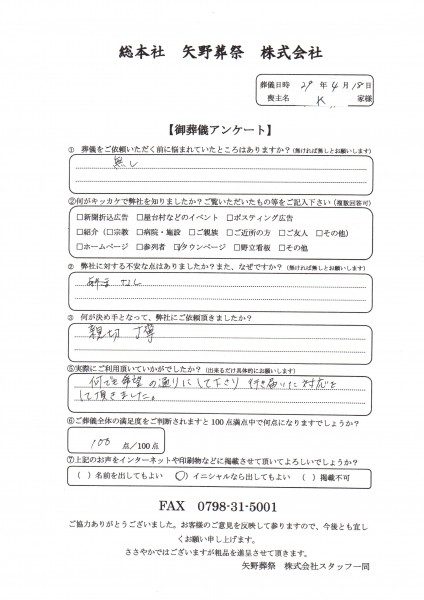 総本社 矢野葬祭 株式会社
葬儀日時 29年4月18日
喪主名 K 家様
【御葬儀アンケート】
① 葬儀をご依頼いただく前に悩まれていたところはありますか？(無ければ無しとお願いします)
無し
②何がキッカケで弊社を知りましたか？ご覧いただいたもの等をご記入下さい(複数回答可)
□新聞折込広告 □屋台村などのイベント □ポスティング広告
□紹介(□宗教 □病院・施設 □ご親族 □ご近所の方 □ご友人 □その他)
□ホームページ □参列者 ☑タウンページ □野立看板 □その他
② 弊社に対する不安な点はありましたか？また、なぜですか？(無ければ無しとお願いします)
なし
③ 何が決め手となって、弊社にご依頼頂きましたか？
親切 丁寧
⑤実際にご利用頂いていかがでしたか？(出来るだけ具体的にお願いします)
何でも希望の通りにして下さり 行き届いた対応を
して頂きました。
⑥ご葬儀全体の満足度をご判断されますと100点満点中で何点になりますでしょうか？
100 点/100点
⑦上記のお声をインターネットや印刷物などに掲載させて頂いてよろしいでしょうか？
( )名前を出してもよい (○)イニシャルなら出してもよい ( )掲載不可
FAX 0798-31-5001
ご協力ありがとうございました。お客様のご意見を反映して参りますので、今後とも宜し
くお願い申し上げます。
ささやかではございますが粗品を進呈させて頂きます。
矢野葬祭 株式会社スタッフ一同